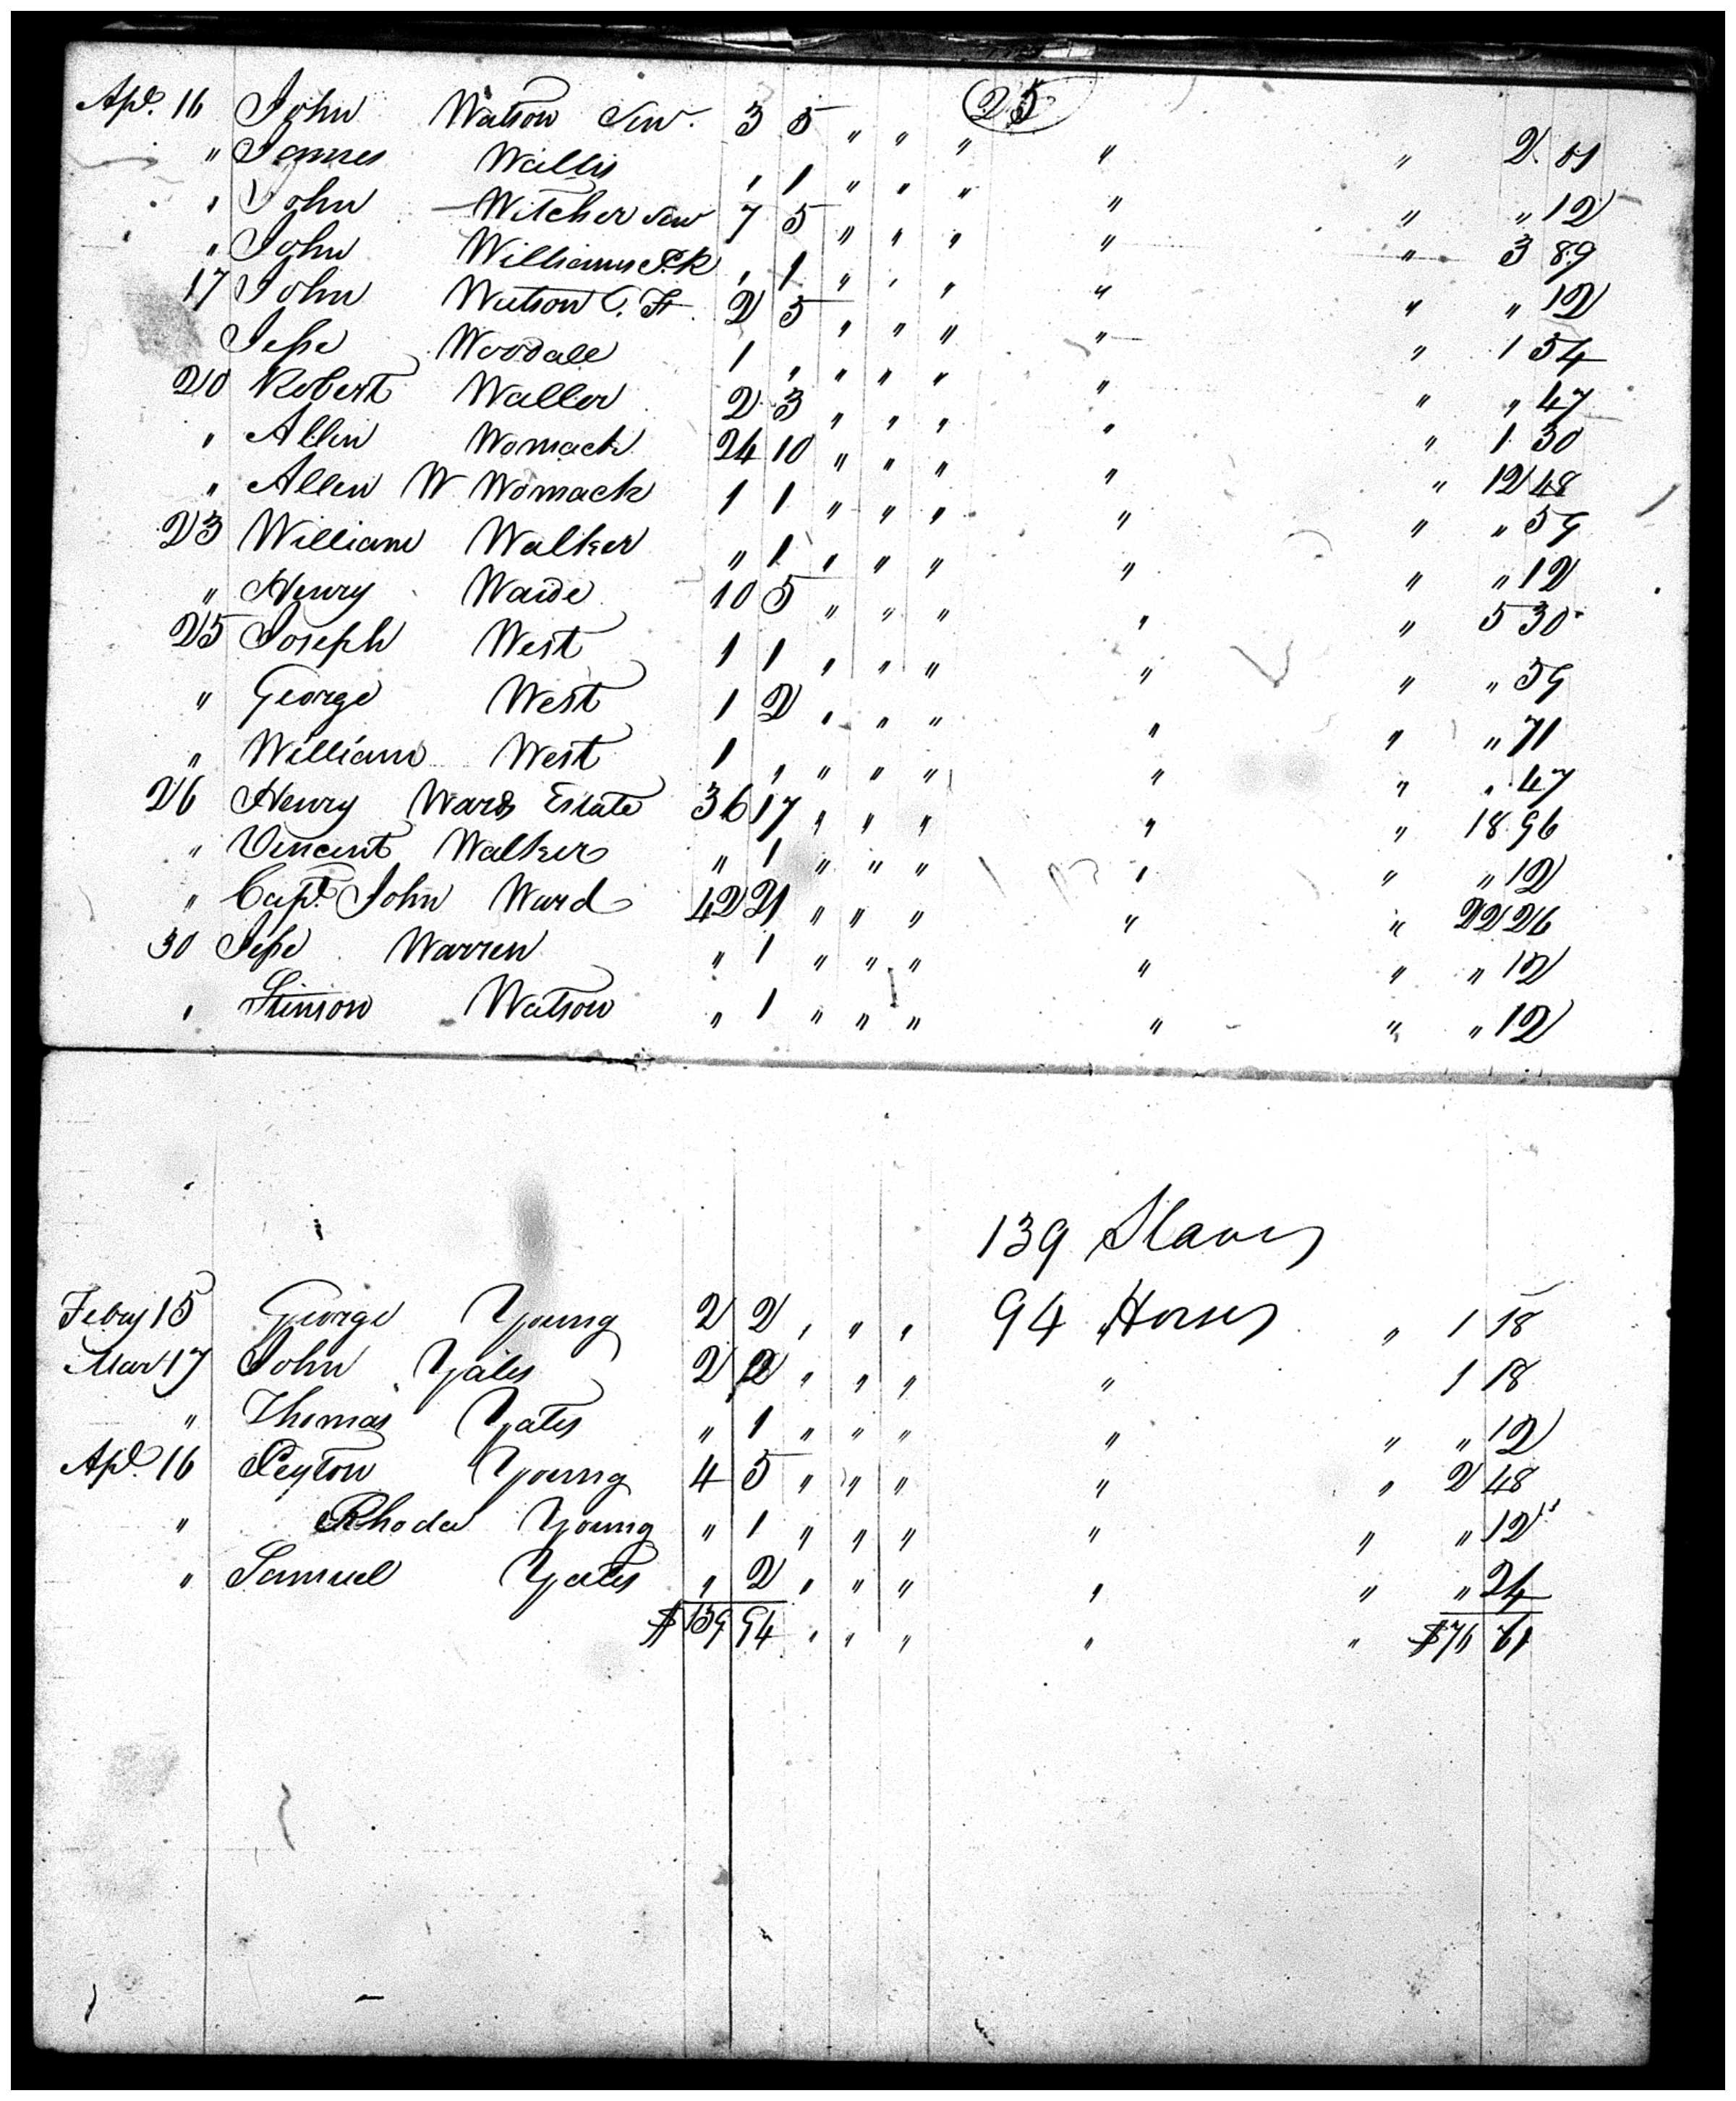 25
Apl. 16 John Watson Senr. 3 5 " " " " " 2. 01
" James Willis " 1 " " " " " " 12
" John Witcher Senr 7 5 " " " " " 3 89
" John Williams P.k " 1 " " " " " " 12
17 John Watson C. H. 2 5 " " " " " 1 54
Jesse Woodall 1 " " " " " " " 47
20 Robert Waller 2 3 " " " " " 1 30
" Allin Womack 24 10 " " " " " 12 48
" Allen W Womack 1 1 " " " " " " 59
23 William Walker " 1 " " " " " " 12
" Henry Waide 10 5 " " " " " 5 30
25 Joseph West 1 1 " " " " " " 59
" George West 1 2 " " " " " " 71
" William West 1 " " " " " " " 47
26 Henry Wards Estate 36 17 " " " " " 18 96
" Vincent Walker " 1 " " " " " " 12
" Capt. John Ward 42 21 " " " " " 22 26
30 Jesse Warren " 1 " " " " " " 12
" Stinson Watson " 1 " " " " " " 12
139 Slaves
94 Horses
Febry 15 George Young 2 2 " " " " 1 18
Mar 17 John Yates 2 2 " " " " 1 18
" Thomas Yates " 1 " " " " " " 12
Apl. 16 Peyton Young 4 5 " " " " " 2 48
" Rhoda Young " 1 " " " " " " 12
" Samuel Yates " 2 " " " " " " 24
$ 139 94 " " " " " $76 61